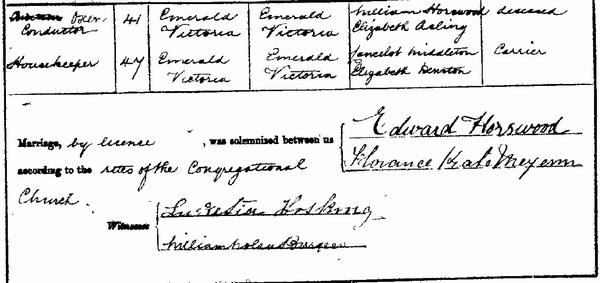 Oxen- 41 Emerald Emerald William Horswood deceased
Conductor Victoria Victoria Elizabeth Asling
Housekeeper 47 Emerald Emerald Lancelot Middleton Carrier
Victoria Victoria Elizabeth Denston
Edward Horswood
Marriage, by license , was solemnized between us
Florance Kate Meyenn
according to the rites of the Congregational
Church.
Lucretia Hosking
Witnesses
William